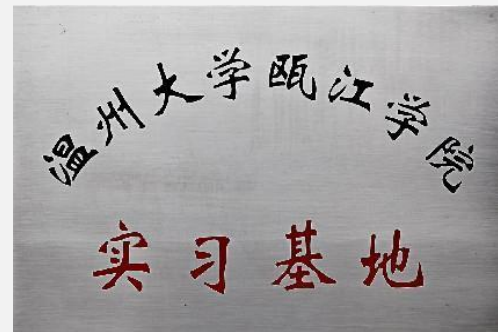 温州大学瓯江学院
实习基地